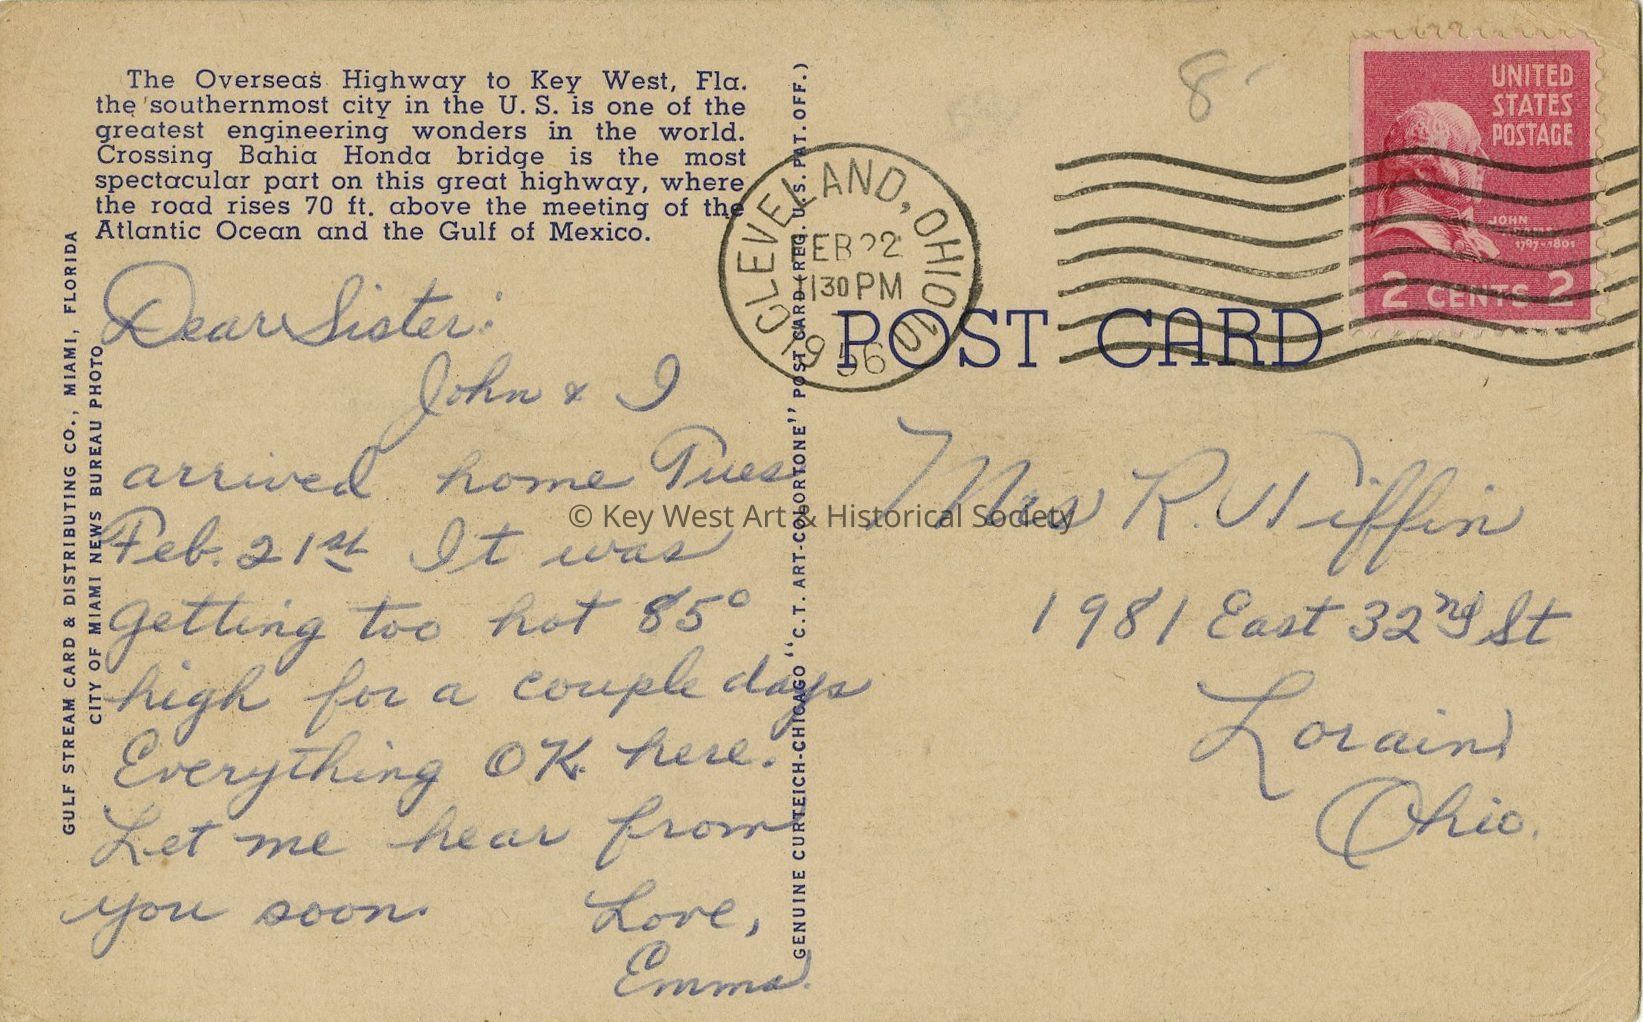 The Overseas Highway to Key West, Fla.
the southernmost city in the U. S. is one of the
greatest engineering wonders in the world.
Crossing Bahia Honda bridge is the most
spectacular part on this great highway, where
the road rises 70 ft. above the meeting of the
Atlantic Ocean and the Gulf of Mexico.
GULF STREAM CARD & DISTRIBUTING CO., MIAMI, FLORIDA
CITY OF MIAMI NEWS BUREAU PHOTO
Dear Sister:
John & I
arrived home Tues
Feb. 21st It was
getting too hot 85°
high for a couple days
Everything OK. here.
Let me hear from
you soon.
Love,
Emma.
GENUINE CURTEICH-CHICAGO "C.T. ART-COLORTONE" POST CARD (REG. U.S. PAT. OFF.)
CLEVELAND, OHIO 10
FEB 22
130 PM
1956
8
UNITED
STATES
POSTAGE
JOHN
1797-1801
2 CENTS 2
POST CARD
Mrs R. Tiffin
1981 East 32nd St
Lorain,
Ohio.
© Key West Art & Historical Society